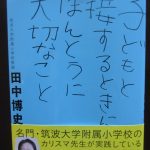 子どもと
接するときに
ほんとうに
大切なこと
田中博史
名門・筑波大学附属小学校の
カリスマ先生が実践している